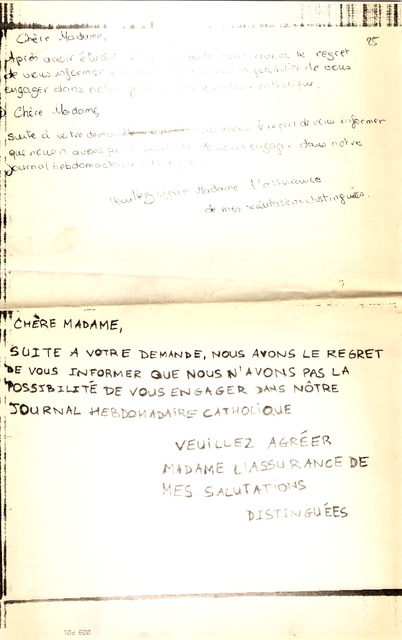 25
Chère Madame,
Après avoir étudié le regret
de vous informer possibilité de vous
engager dans catholique.
Chère Madame,
suite à votre demande le regret de vous informer
que nous n'avons pas de vous engager dans notre
journal hebdomadaire
Veuillez agréer Madame l'assurance
de mes salutations distinguées.
CHÈRE MADAME,
SUITE A VOTRE DEMANDE, NOUS AVONS LE REGRET
DE VOUS INFORMER QUE NOUS N'AVONS PAS LA
POSSIBILITÉ DE VOUS ENGAGER DANS NÔTRE
JOURNAL HEBDOMADAIRE CATHOLIQUE
VEUILLEZ AGRÉER
MADAME L'ASSURANCE DE
MES SALUTATIONS
DISTINGUÉES